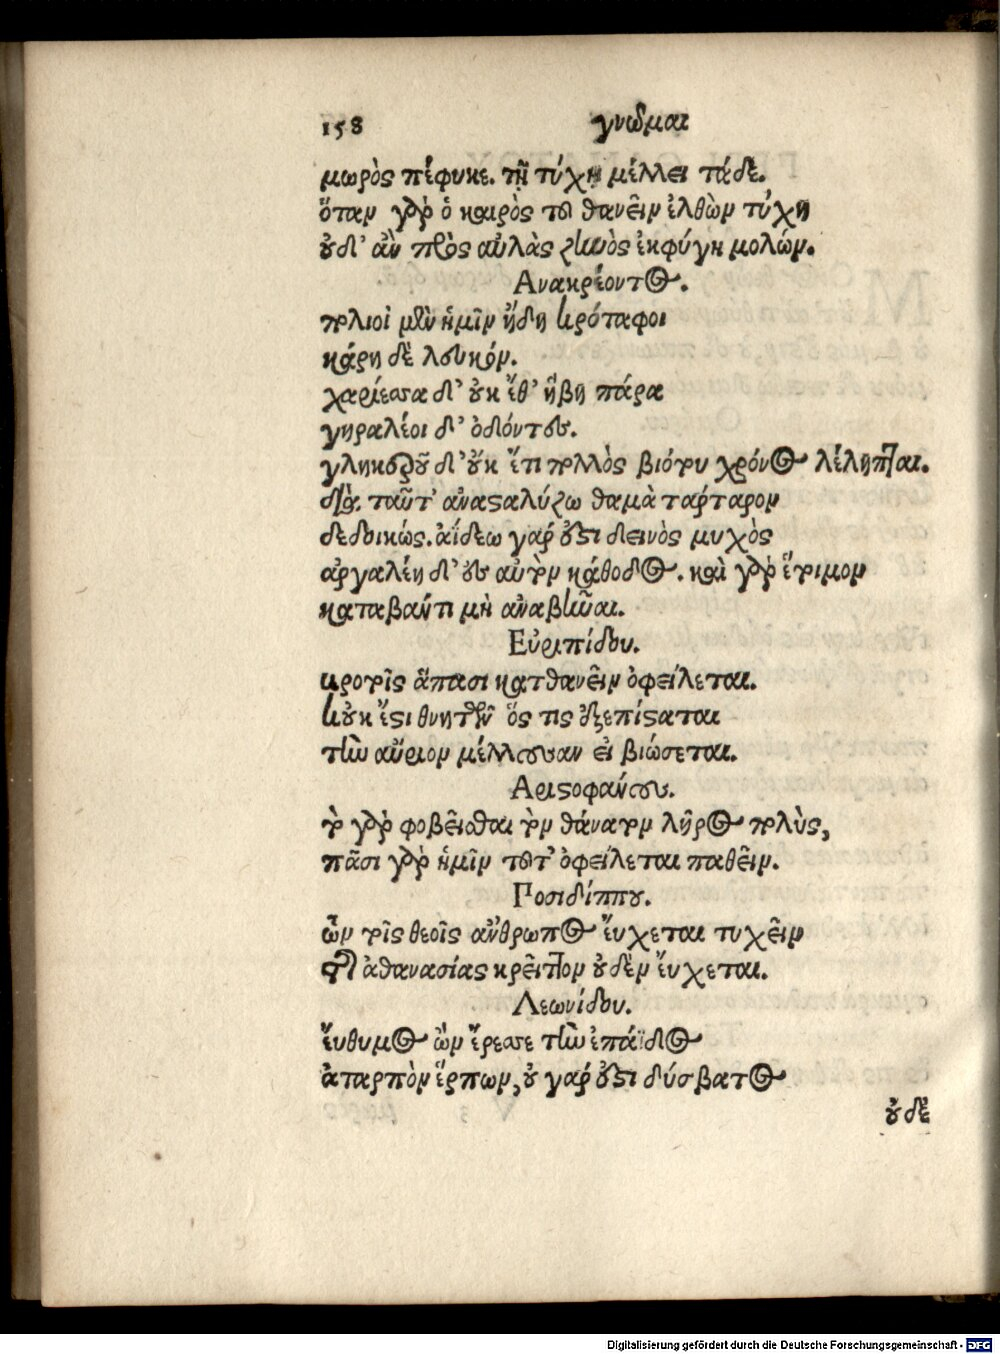 158 γνῶμαι
μωρὸς πέφυκε. τῇ τύχῃ μέλλει τάδε.
ὅταν γὰρ ὁ καιρὸς τοῦ θανεῖν ἐλθὼν τύχῃ
οὐδ' ἂν πρὸς αὐλὰς ζηνὸς ἐκφύγῃ μολών.
Ανακρέοντος.
πολιοὶ μὲν ἡμῖν ἤδη κρόταφοι
κάρη δὲ λευκόν.
χαρίεσσα δ' οὐκ ἔθ' ἥβη πάρα
γηραλέοι δ' ὀδόντες.
γληκεροῦ δ' οὐκ ἔτι πολλὸς βιότου χρόνος λέλειπται.
διὰ ταῦτ' ἀνασαλύζω θαμὰ τάρταρον
δεδοικώς. ἀΐδεω γάρ ἐστι δεινὸς μυχὸς
ἀργαλέη δ' ἐς αὐτὸν κάθοδος. καὶ γὰρ ἕτοιμον
καταβάντι μὴ ἀναβῆναι.
Εὐριπίδου.
βροτοῖς ἅπασι κατθανεῖν ὀφείλεται.
κοὐκ ἔστι θνητῶν ὅς τις ἐξεπίσταται
τὴν αὔριον μέλλουσαν εἰ βιώσεται.
Αριστοφάνους.
τὸ γὰρ φοβεῖσθαι τὸν θάνατον λῆρος πολὺς,
πᾶσι γὰρ ἡμῖν τοῦτ' ὀφείλεται παθεῖν.
Ποσιδίππου.
ὧν τοῖς θεοῖς ἄνθρωπος εὔχεται τυχεῖν
τῆς ἀθανασίας κρεῖττον οὐδὲν εὔχεται.
Λεωνίδου.
εὔθυμος ὢν ἔρεσσε τὴν ἐπ' ἄϊδος
ἀταρπὸν ἕρπων, οὐ γάρ ἐστι δύσβατος
οὐδὲ
Digitalisierung gefördert durch die Deutsche Forschungsgemeinschaft - DFG